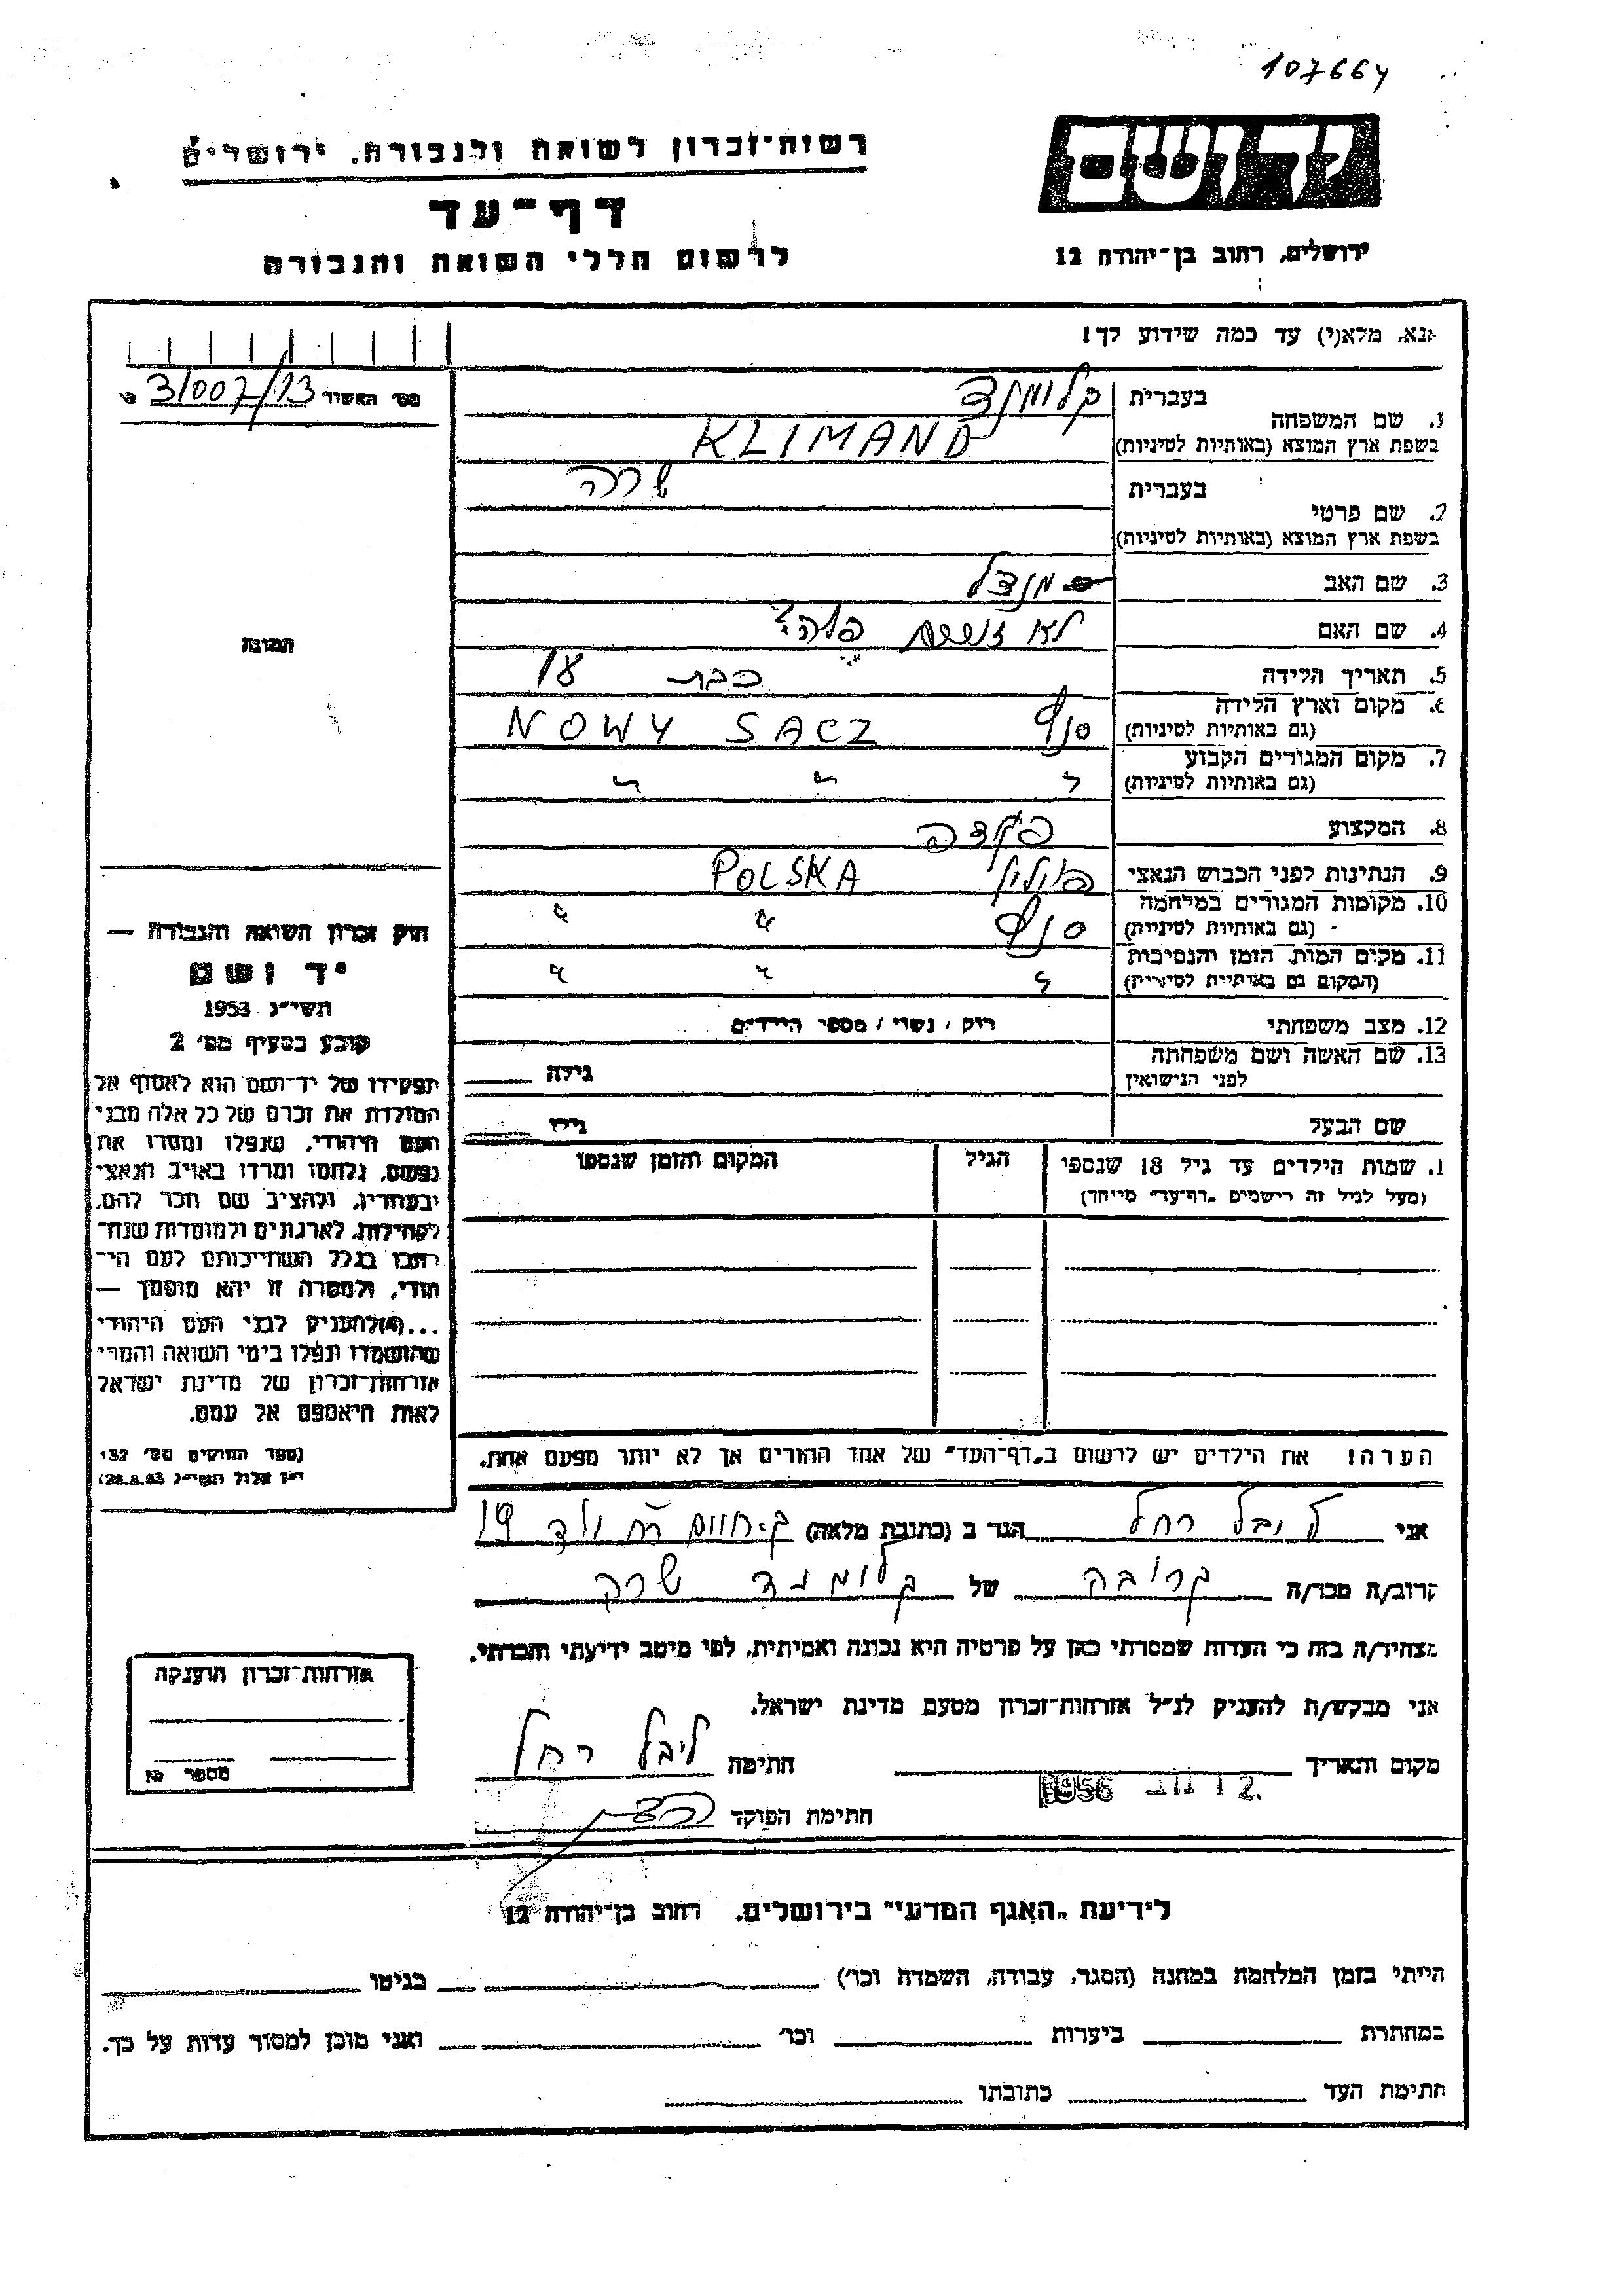 107664
יד ושם
רשות־זכרון לשואה ולגבורה, ירושלים
דף־עד
לרשום חללי השואה והגבורה
ירושלים, רחוב בן־יהודה 12
אנא, מלא(י) עד כמה שידוע לך!
מס׳ תאשיר 31007/13
1. שם המשפחה
בעברית קלומנד
בשפת ארץ המוצא (באותיות לטיניות) KLIMAND
2. שם פרטי
בעברית שרה
בשפת ארץ המוצא (באותיות לטיניות)
3. שם האב מנדל
4. שם האם לא
5. תאריך הלידה כבת
6. מקום וארץ הלידה
(גם באותיות לטיניות) NOWY SACZ
7. מקום המגורים הקבוע
(גם באותיות לטיניות) " " "
8. המקצוע פקידה
9. הנתינות לפני הכבוש הנאצי פולין POLSKA
10. מקומות המגורים במלחמה
(גם באותיות לטיניות) " "
11. מקום המות, הזמן והנסיבות
(המקום גם באותיות לטיניות) " " "
12. מצב משפחתי רוק / נשוי / מספר הילדים
13. שם האשה ושם משפחתה
לפני הנישואין גילה
שם הבעל גילו
1. שמות הילדים עד גיל 18 שנספו הגיל המקום והזמן שנספו
(מעל לגיל זה רישמים "דף־עד" מייחד)
הערה! את הילדים יש לרשום ב"דף־העד" של אחד ההורים אך לא יותר מפעם אחת.
תמונה
חוק זכרון השואה והגבורה —
יד ושם
תשי״ג 1953
קובע בסעיף מס׳ 2
תפקידו של יד־ושם הוא לאסוף אל
המולדת את זכרם של כל אלה מבני
העם היהודי, שנפלו ומסרו את
נפשם, נלחמו ומרדו באויב הנאצי
ובעוזריו, ולהציב שם וזכר להם,
לקהילות, לארגונים ולמוסדות שנח־
רבו בגלל השתייכותם לעם הי־
הודי, ולמטרה זו יהא מוסמך —
...(4) להעניק לבני העם היהודי
שהושמדו ונפלו בימי השואה והמרי
אזרחות־זכרון של מדינת ישראל
לאות היאספם אל עמם.
(ספר החוקים מס׳ 132
י״ז אלול תשי״ג 28.8.53)
אני ליבל רחל הגר ב (כתובת מלאה) ק. חיים 19
קרוב/ה מכר/ה קרובה של קלומנד שרה
מצהיר/ה בזה כי העדות שמסרתי כאן על פרטיה היא נכונה ואמיתית, לפי מיטב ידיעתי והכרתי.
אני מבקש/ת להעניק לנ״ל אזרחות־זכרון מטעם מדינת ישראל.
מקום ותאריך 1956 חתימה ליבל רחל
חתימת הפוקד
אזרחות־זכרון הוענקה
מספר
לידיעת "האגף המדעי" בירושלים, רחוב בן־יהודה 12
הייתי בזמן המלחמה במחנה (הסגר, עבודה, השמדה וכו׳) בגיטו
במחתרת ביערות וכו׳ ואני מוכן למסור עדות על כך.
חתימת העד כתובתו